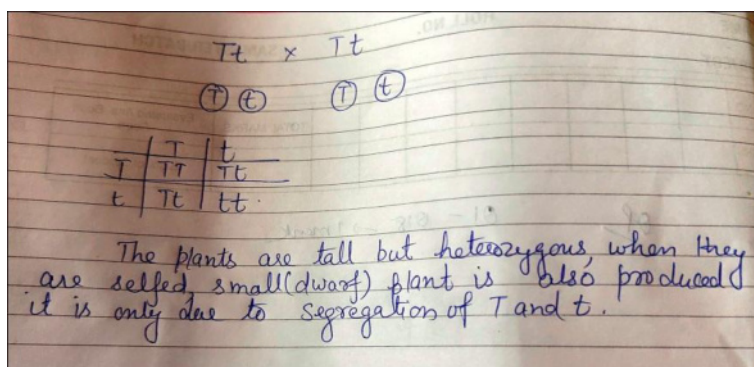 Tt × Tt
T t T t
T t
T TT Tt
t Tt tt
The plants are tall but heterozygous, when they
are selfed, small(dwarf) plant is also produced
it is only due to segregation of T and t.